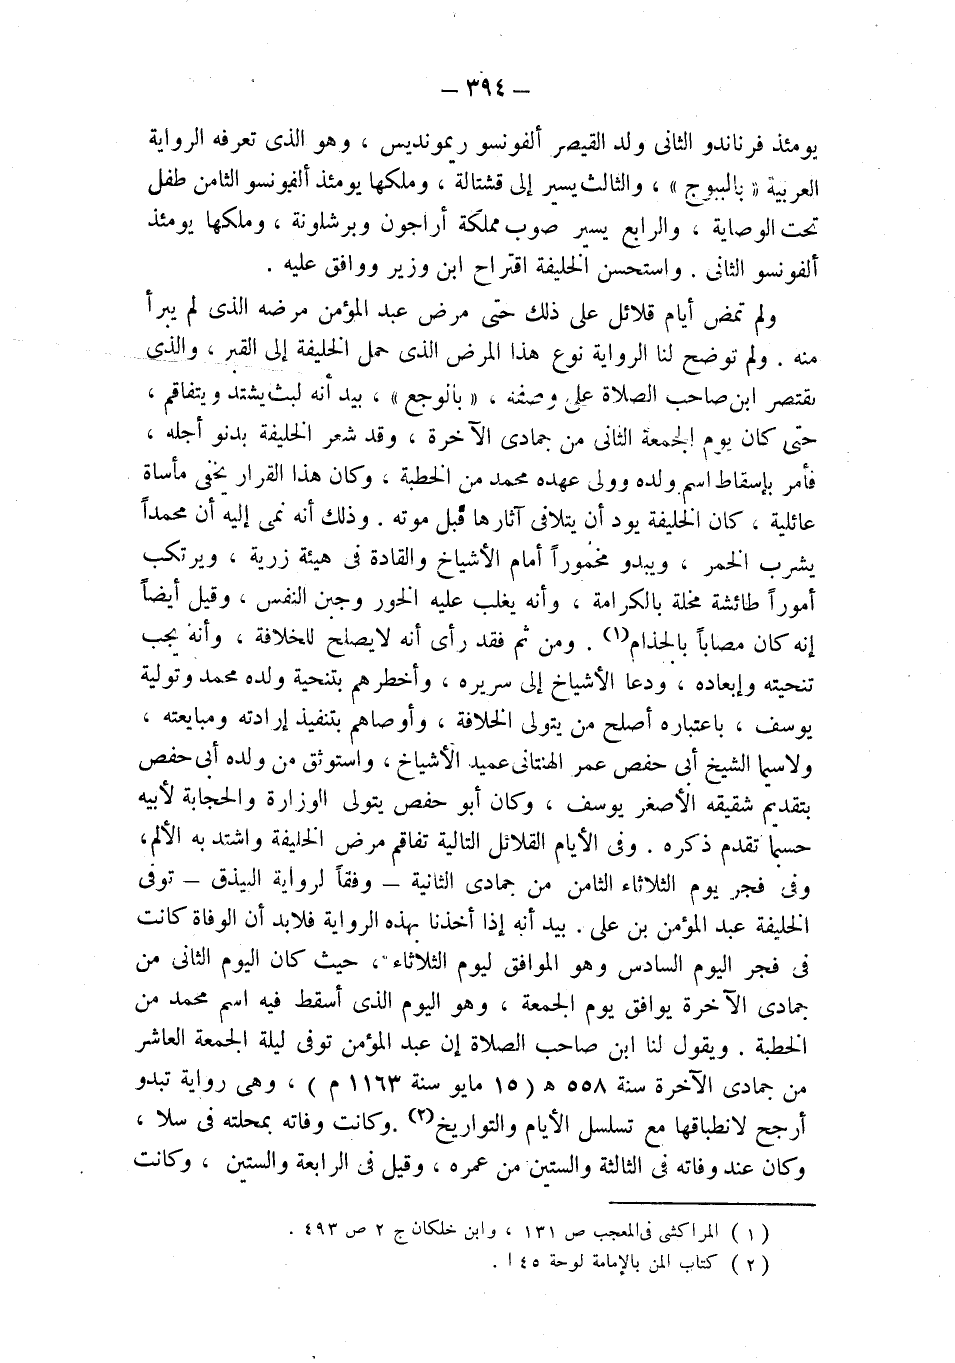 — ٣٩٤ —
يومئذ فرناندو الثانى ولد القيصر ألفونسو ريمونديس ، وهو الذى تعرفه الرواية
العربية « بالببوج » ، والثالث يسير إلى قشتالة ، وملكها يومئذ ألفونسو الثامن طفل
تحت الوصاية ، والرابع يسير صوب مملكة أراجون وبرشلونة ، وملكها يومئذ
ألفونسو الثانى . واستحسن الخليفة اقتراح ابن وزير ووافق عليه .
ولم تمض أيام قلائل على ذلك حتى مرض عبد المؤمن مرضه الذى لم يبرأ
منه . ولم توضح لنا الرواية نوع هذا المرض الذى حمل الخليفة إلى القبر ، والذى
يقتصر ابن صاحب الصلاة على وصفه ، « بالوجع » ، بيد أنه لبث يشتد ويتفاقم ،
حتى كان يوم الجمعة الثانى من جمادى الآخرة ، وقد شعر الخليفة بدنو أجله ،
فأمر بإسقاط اسم ولده وولى عهده محمد من الخطبة ، وكان هذا القرار يخفى مأساة
عائلية ، كان الخليفة يود أن يتلافى آثارها قبل موته . وذلك أنه نمى إليه أن محمداً
يشرب الخمر ، ويبدو مخموراً أمام الأشياخ والقادة فى هيئة زرية ، ويرتكب
أموراً طائشة مخلة بالكرامة ، وأنه يغلب عليه الخور وجبن النفس ، وقيل أيضاً
إنه كان مصاباً بالجذام(١) . ومن ثم فقد رأى أنه لايصلح للخلافة ، وأنه يجب
تنحيته وإبعاده ، ودعا الأشياخ إلى سريره ، وأخطرهم بتنحية ولده محمد وتولية
يوسف ، باعتباره أصلح من يتولى الخلافة ، وأوصاهم بتنفيذ إرادته ومبايعته ،
ولاسيما الشيخ أبى حفص عمر الهنتانى عميد الأشياخ ، واستوثق من ولده أبى حفص
بتقديم شقيقه الأصغر يوسف ، وكان أبو حفص يتولى الوزارة والحجابة لأبيه
حسبما تقدم ذكره . وفى الأيام القلائل التالية تفاقم مرض الخليفة واشتد به الألم،
وفى فجر يوم الثلاثاء الثامن من جمادى الثانية – وفقاً لرواية البيذق – توفى
الخليفة عبد المؤمن بن على . بيد أنه إذا أخذنا بهذه الرواية فلابد أن الوفاة كانت
فى فجر اليوم السادس وهو الموافق ليوم الثلاثاء ، حيث كان اليوم الثانى من
جمادى الآخرة يوافق يوم الجمعة ، وهو اليوم الذى أسقط فيه اسم محمد من
الخطبة . ويقول لنا ابن صاحب الصلاة إن عبد المؤمن توفى ليلة الجمعة العاشر
من جمادى الآخرة سنة ٥٥٨ ه ( ١٥ مايو سنة ١١٦٣ م ) ، وهى رواية تبدو
أرجح لانطباقها مع تسلسل الأيام والتواريخ(٢) .وكانت وفاته بمحلته فى سلا ،
وكان عند وفاته فى الثالثة والستين من عمره ، وقيل فى الرابعة والستين ، وكانت
(١) المراكشى فى المعجب ص ١٣١ ، وابن خلكان ج ٢ ص ٤٩٣ .
(٢) كتاب المن بالإمامة لوحة ٤٥ ا .